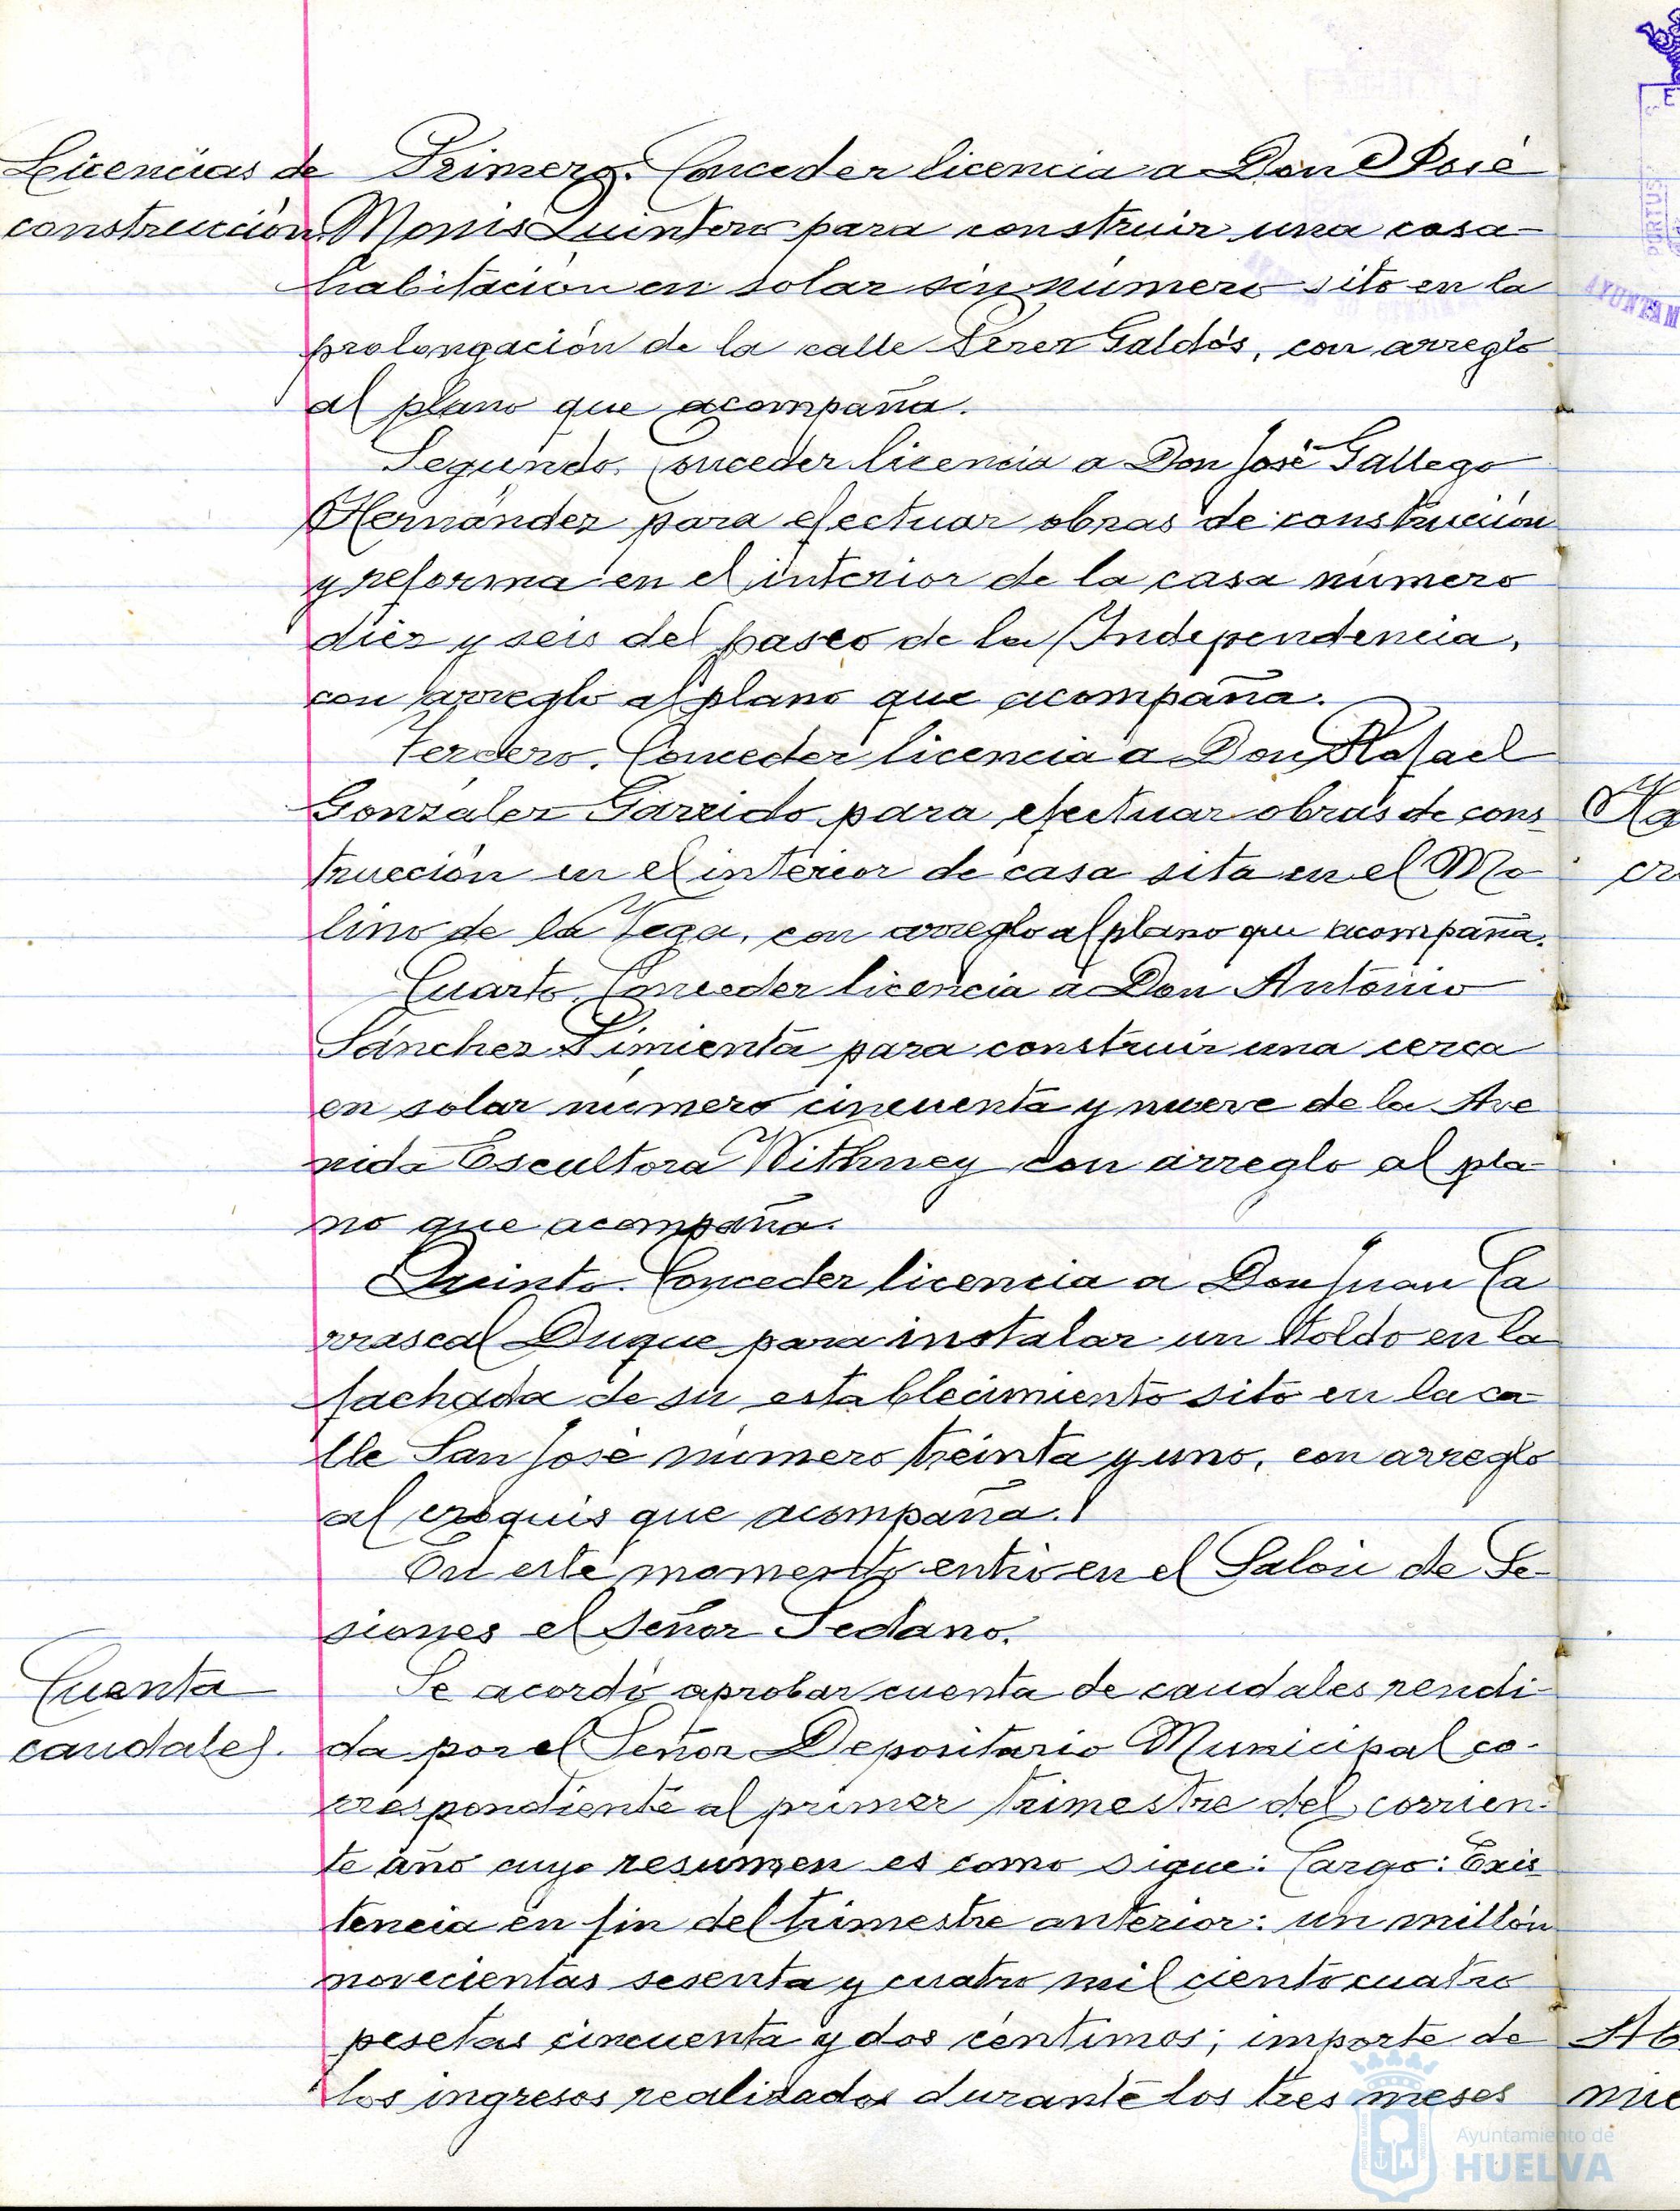 Licencias de
construcción
Primero. Conceder licencia a Don José
Monis Quintero para construir una casa
habitación en solar sin número sito en la
prolongación de la calle Perez Galdós, con arreglo
al plano que acompaña.
Segundo. Conceder licencia a Don José Gallego
Hernández para efectuar obras de construcción
y reforma en el interior de la casa número
diez y seis del paseo de la Independencia,
con arreglo al plano que acompaña.
Tercero. Conceder licencia a Don Rafael
González Garrido para efectuar obras de cons-
trucción en el interior de casa sita en el Mo-
lino de la Vega, con arreglo al plano que acompaña.
Cuarto. Conceder licencia a Don Antonio
Sánchez Pimienta para construir una cerca
en solar número cincuenta y nueve de la Ave
nida Escultora Withney con arreglo al pla-
no que acompaña.
Quinto. Conceder licencia a Don Juan Ca
rrascal Duque para instalar un toldo en la
fachada de su establecimiento sito en la ca-
lle San José número treinta y uno, con arreglo
al croquis que acompaña.
En este momento entró en el Salón de Se-
siones el señor Sedano.
Cuenta
caudales.
Se acordó aprobar cuenta de caudales rendi-
da por el Señor Depositario Municipal co-
rrespondiente al primer trimestre del corrien-
te año cuyo resumen es como sigue: Cargo: Exis-
tencia en fin del trimestre anterior: un millón
novecientas sesenta y cuatro mil ciento cuatro
pesetas cincuenta y dos céntimos; importe de
los ingresos realizados durante los tres meses
Ayuntamiento de
HUELVA